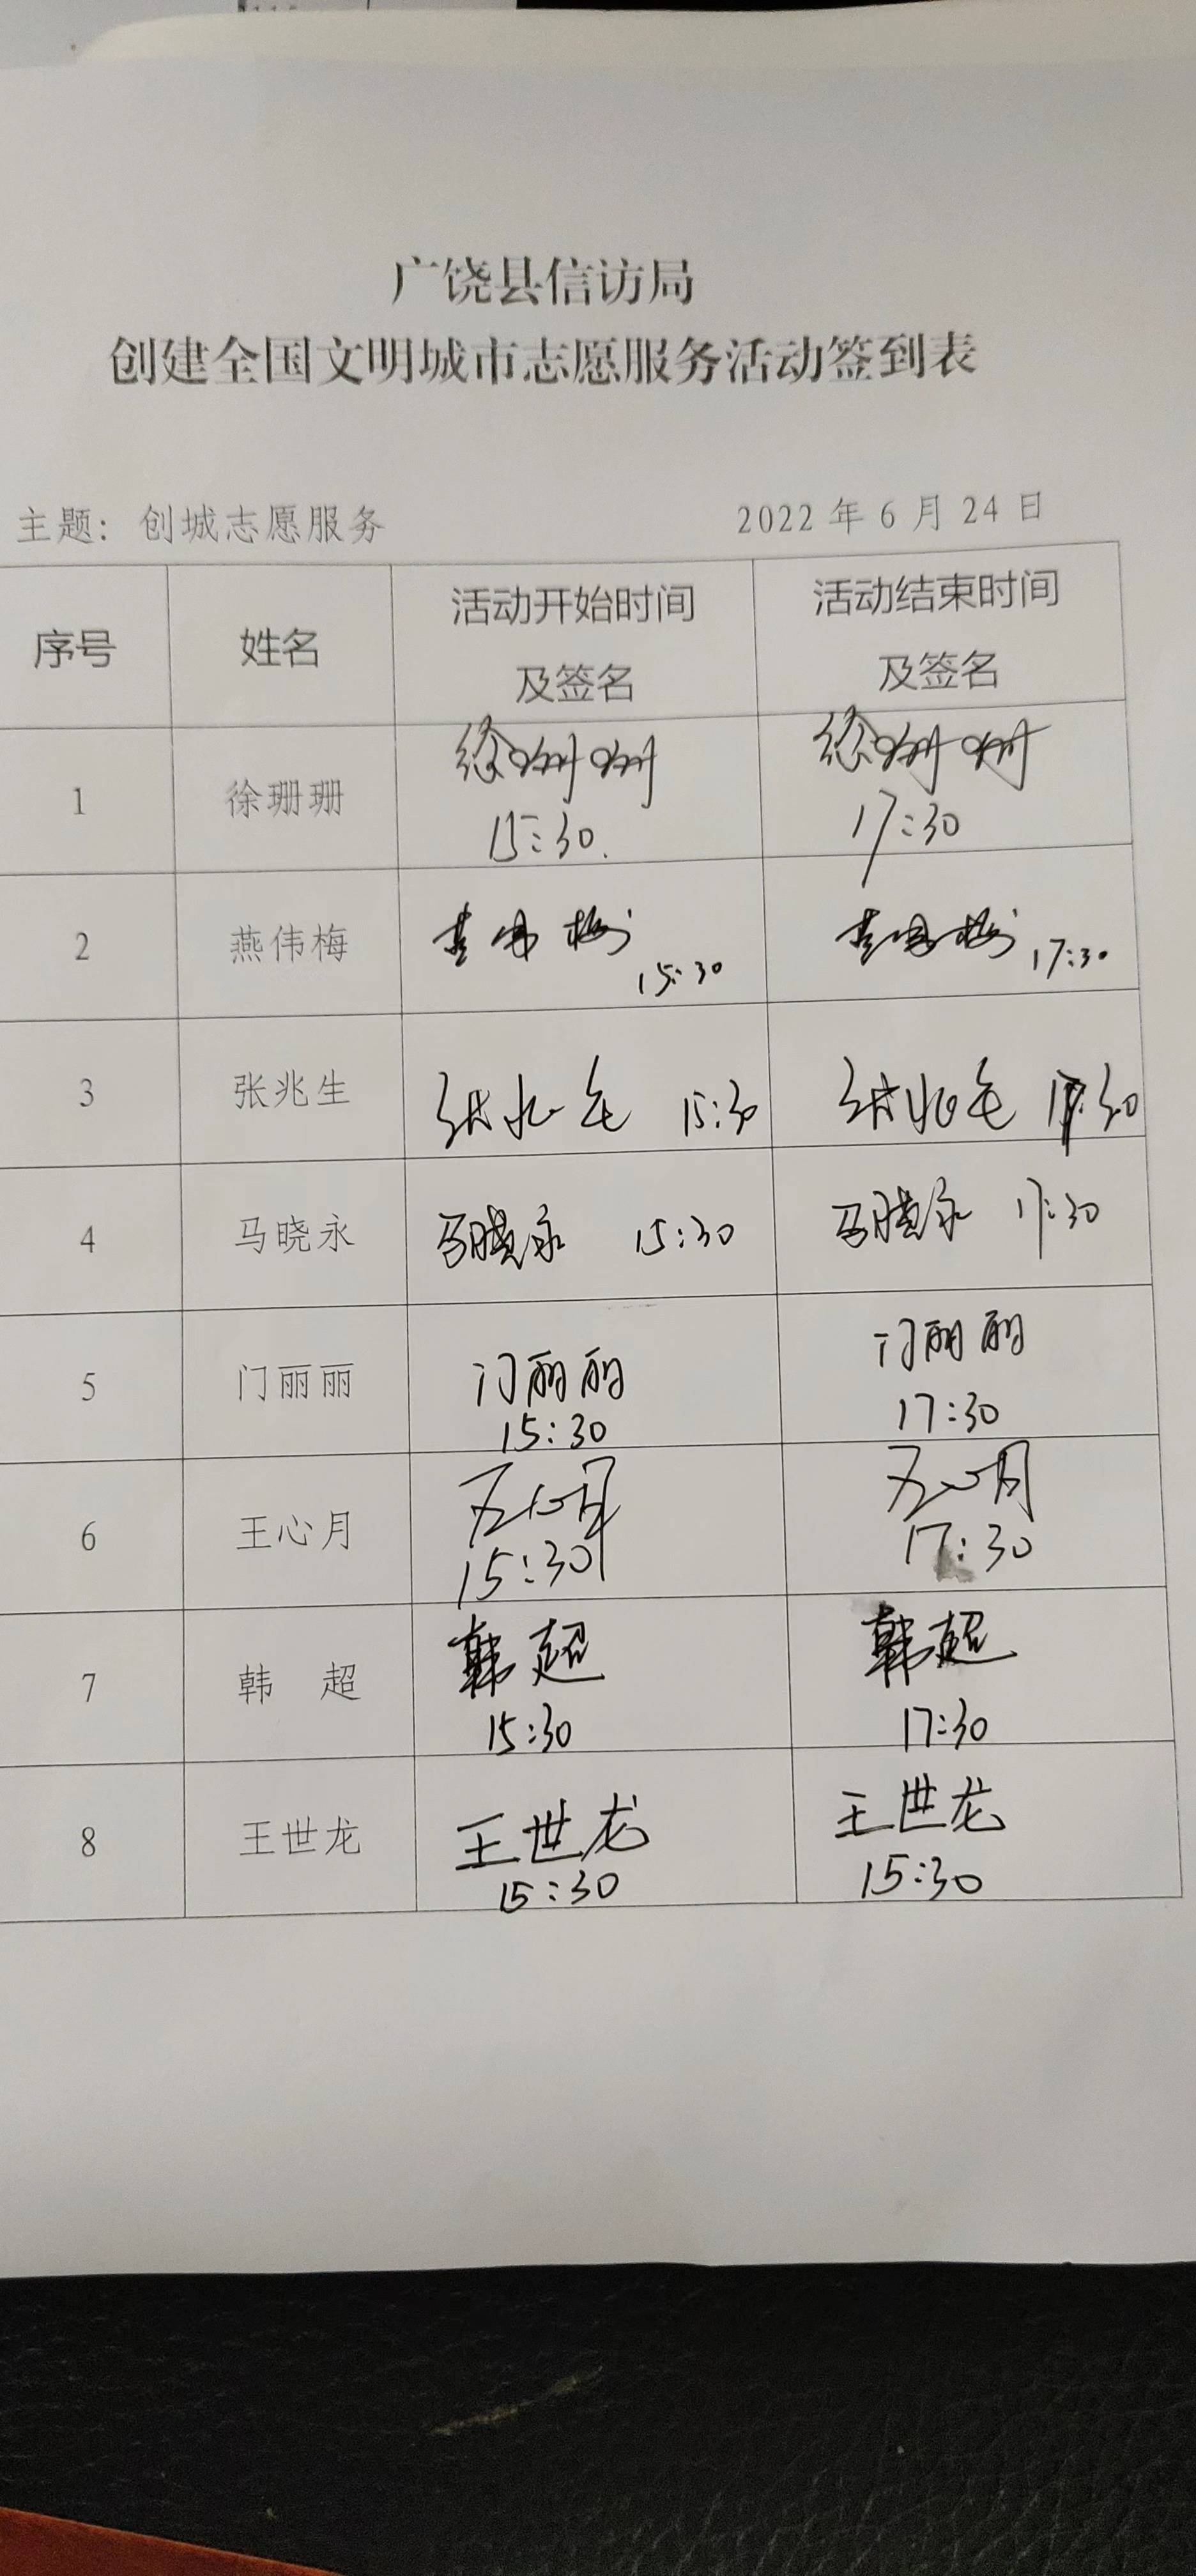 广饶县信访局
创建全国文明城市志愿服务活动签到表
主题：创城志愿服务 2022年6月24日
序号 姓名 活动开始时间 活动结束时间
及签名 及签名
1 徐珊珊 徐珊珊 徐珊珊
15:30. 17:30
2 燕伟梅 燕伟梅 15:30 燕伟梅 17:30
3 张兆生 张兆生 15:30 张兆生 17:30
4 马晓永 马晓永 15:30 马晓永 17:30
5 门丽丽 门丽丽 门丽丽
15:30 17:30
6 王心月 王心月 王心月
15:30 17:30
7 韩 超 韩超 韩超
15:30 17:30
8 王世龙 王世龙 王世龙
15:30 15:30